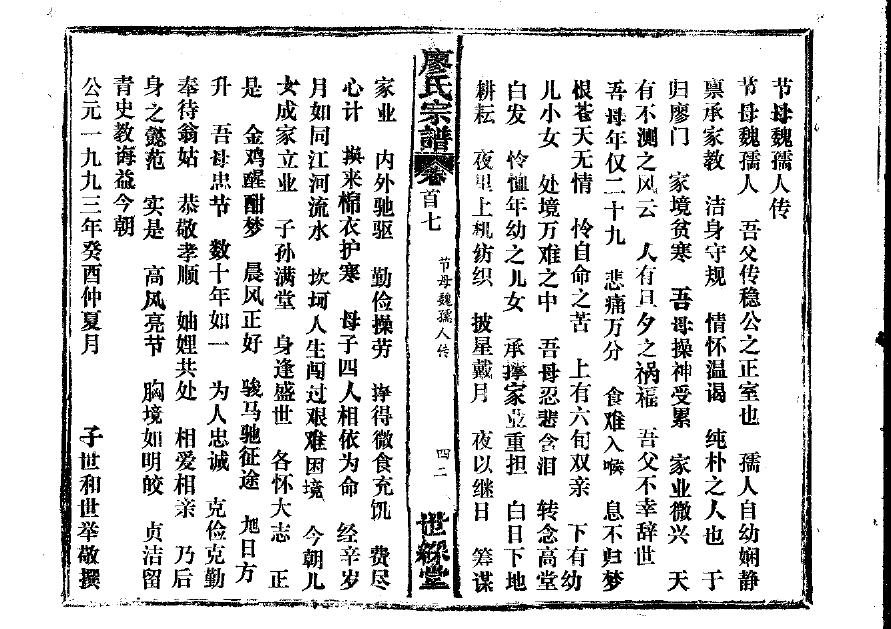 节母魏孺人传
节母魏孺人　吾父传稳公之正室也　孺人自幼娴静
禀承家教　洁身守规　情怀温谒　纯朴之人也　于
归廖门　家境贫寒　吾母操神受累　家业微兴　天
有不测之风云　人有旦夕之祸福　吾父不幸辞世
吾母年仅二十九　悲痛万分　食难入喉　息不归梦
恨苍天无情　怜自命之苦　上有六旬双亲　下有幼
儿小女　处境万难之中　吾母忍悲含泪　转念高堂
白发　怜恤年幼之儿女　承撑家业重担　白日下地
耕耘　夜里上机纺织　披星戴月　夜以继日　筹谋
廖氏宗譜　卷首七　节母魏孺人传　四二　世綵堂
家业　内外驰驱　勤俭操劳　挣得微食充饥　费尽
心计　换来棉衣护寒　母子四人相依为命　经辛岁
月如同江河流水　坎坷人生闯过艰难困境　今朝儿
女成家立业　子孙满堂　身逢盛世　各怀大志　正
是　金鸡醒酣梦　晨风正好　骏马驰征途　旭日方
升　吾母忠节　数十年如一　为人忠诚　克俭克勤
奉待翁姑　恭敬孝顺　妯娌共处　相爱相亲　乃后
身之懿范　实是　高风亮节　胸境如明皎　贞洁留
青史教诲益今朝
公元一九九三年癸酉仲夏月　子世和世举敬撰